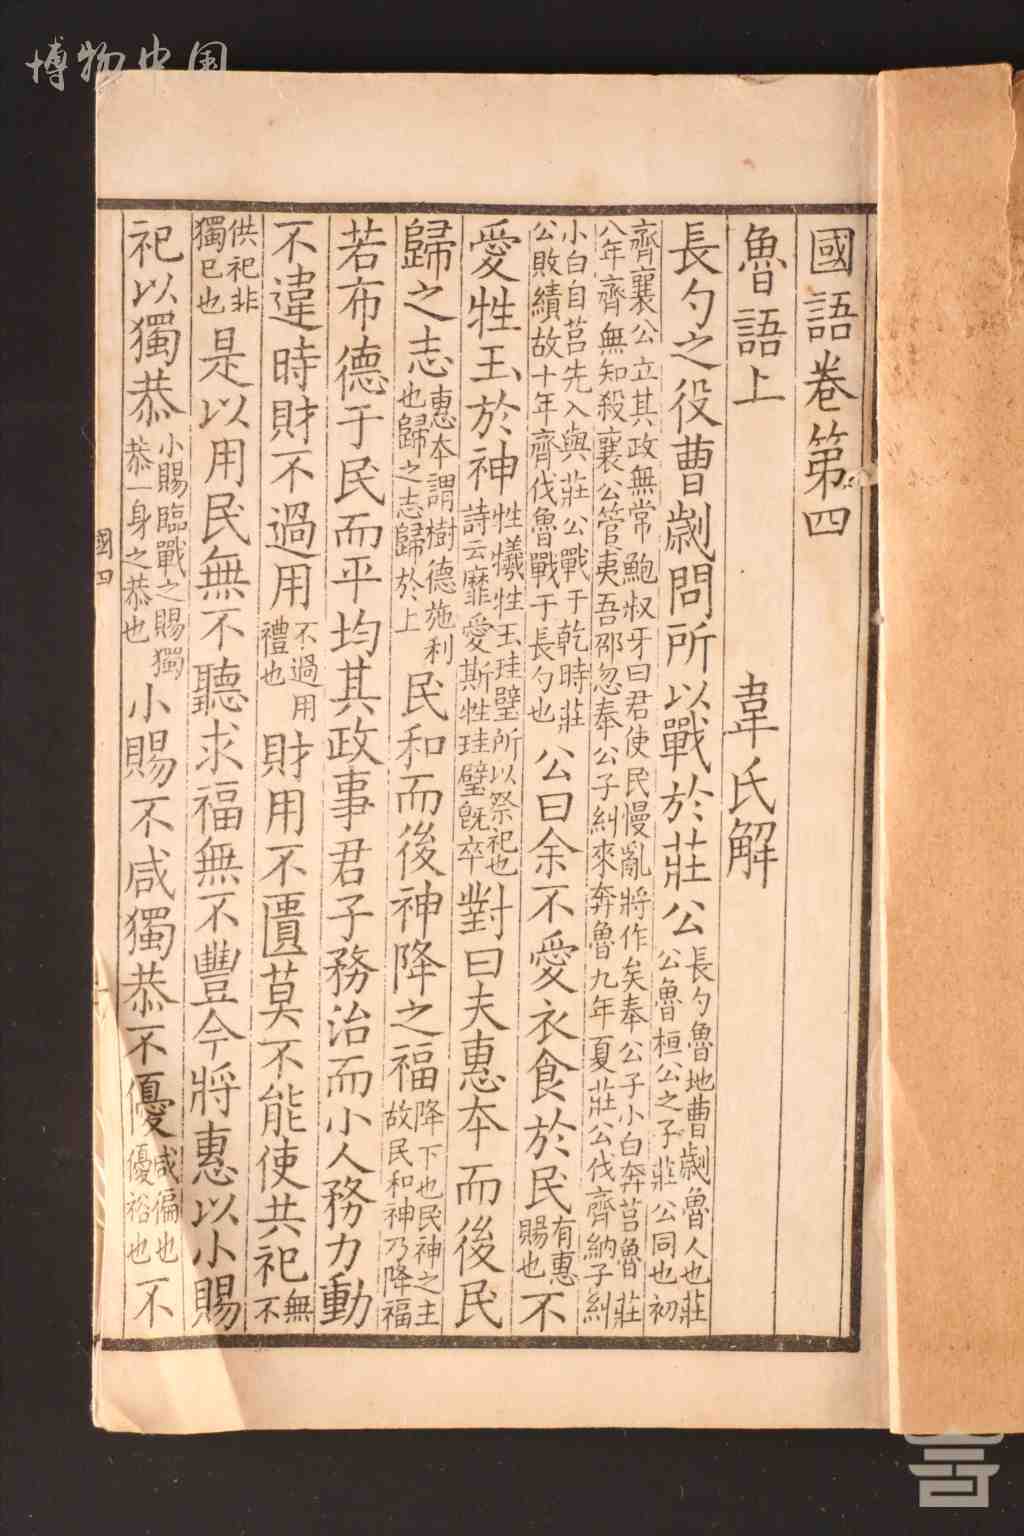 博物中国
國語卷第四
魯語上 韋氏解
長勺之役曹劌問所以戰於莊公長勺魯地曹劌魯人也莊公魯桓公之子莊公同也初
齊襄公立其政無常鮑叔牙曰君使民慢亂將作矣奉公子小白奔莒魯莊八年齊無知殺襄公管夷吾邵忽奉公子糾來奔魯九年夏莊公伐齊納子糾
小白自莒先入與莊公戰于乾時莊公敗績故十年齊伐魯戰于長勺也公曰余不愛衣食於民有惠賜也不
愛牲玉於神牲犧牲玉珪璧所以祭祀也詩云靡愛斯牲珪璧旣卒對曰夫惠本而後民
歸之志惠本謂樹德施利也歸之志歸於上民和而後神降之福降下也民神之主故民和神乃降福
若布德于民而平均其政事君子務治而小人務力動
不違時財不過用不過用禮也財用不匱莫不能使共祀無不
供祀非獨已也是以用民無不聽求福無不豐今將惠以小賜
祀以獨恭小賜臨戰之賜獨恭一身之恭也小賜不咸獨恭不優咸徧也優裕也不
國四